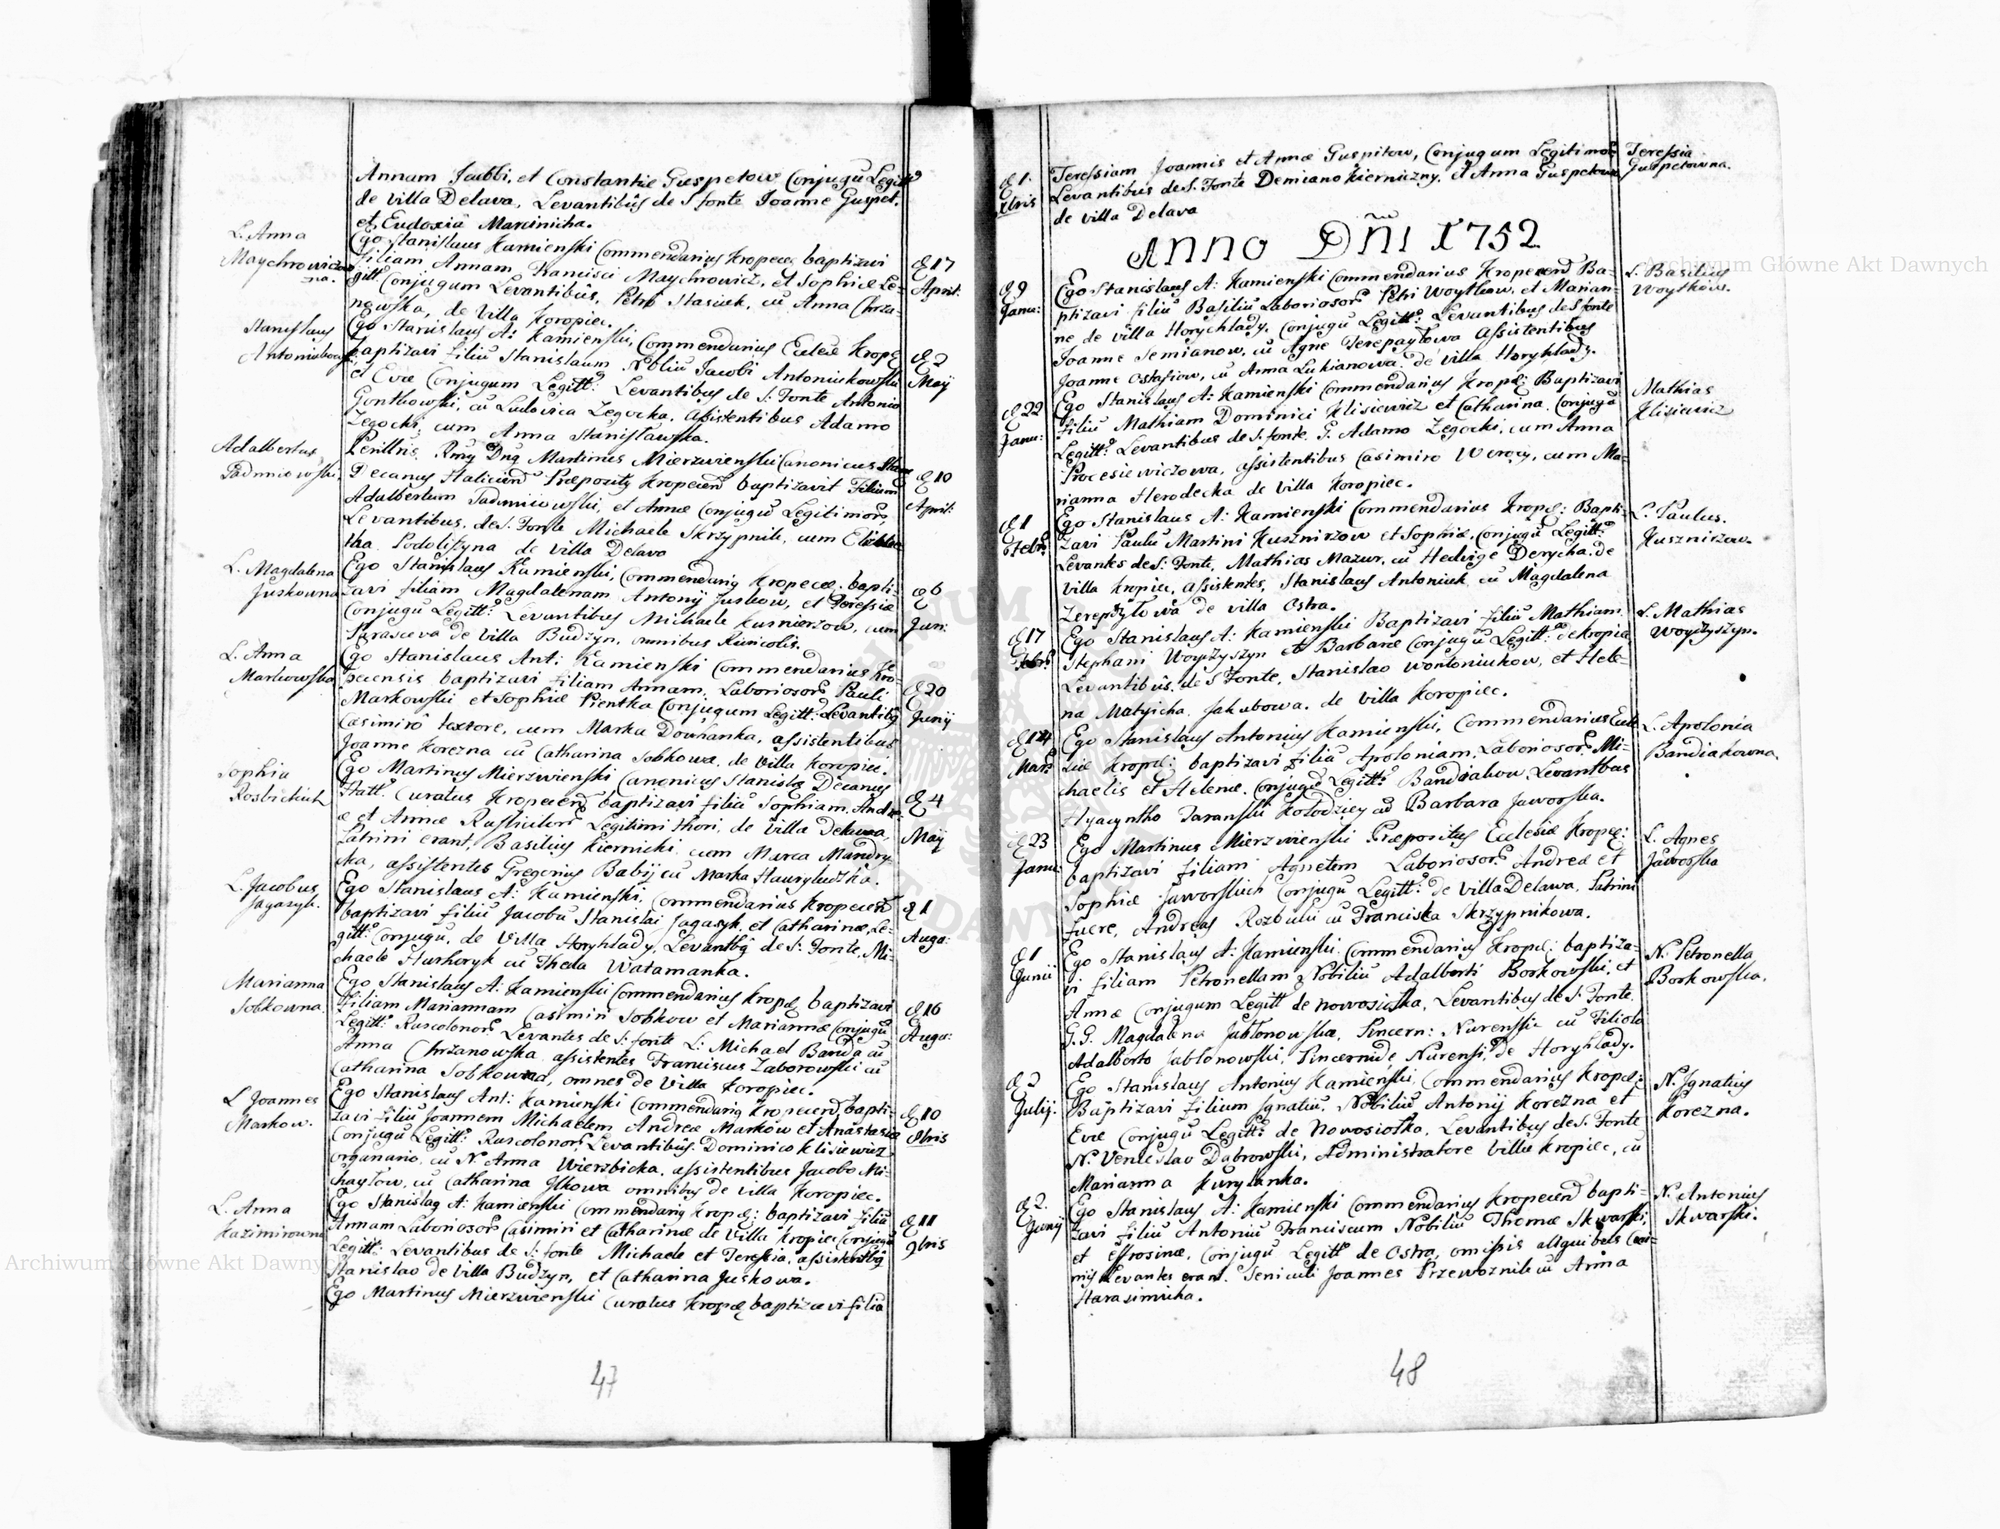 Annam Jacobi, et Constantiæ Guspetow Conjugũ Legitt
de villa Delava, Levantibũs de S fonte Joanne Guspet,
et Eudoxiâ Marciniicha.
L. Anna
Maychrowiczo
na.
Ego Stanislaus Kamienski Commendarius Kropec. baptizavi
filiam Annam, Francisci Maychrowicz, et Sophiæ Le-
gitt: Conjugum Levantibûs, Petro Stasiuk, cũ Anna Chrza-
nowska, de Villa Koropiec.
d 17
April:
Stanislaus
Antoniukows
Ego Stanislaus A: Kamienski, Commendarius Eccleæ Krope
baptizavi filiũ Stanislaum Nobliũ Jacobi Antoniukowski
et Evæ Conjugum Legitt: Levantibus de S: Fonte Antonio
Gontkowski, cũ Ludovica Zegocka, assistentibus Adamo
Zegocki, cum Anna Stanisławska.
d 2
Maÿ
Adalbertus
Sadmiowski.
Perillris Rmg Dng Martinus Mierzwienski Canonicus
Decanus Haliciens Præposity Kropecens baptizavit Filium
Adalbertum Sadmiowski, et Annæ Conjugũ Legitimor,
Levantibus. de S: Fonte Michaele Skrzypnik, cum Elizabe
tha Podoliszyna de villa Delavo
d 10
April:
L. Magdalena
Juskowna
Ego Stanislaus Kamienski, Commendarig Kropecens. bapti-
zavi filiam Magdalenam Antonij Juskow, et Teressiæ
Conjugũ Legitt: Levantibus Michaele Kusnierzow, cum
Parasceva de Villa Budzyn, omnibus Ruricolis.
d 6
Jun:
L. Anna
Markowska
Ego Stanislaus Ant: Kamienski Commendarius Kro-
pecensis baptizavi filiam Annam. Laboriosor Pauli
Markowski et Sophiæ Pientka Conjugum Legitt: Levantibg
Casimirô textore, cum Marka Dowhanka, assistentibus
Joanne Korezna cũ Catharina Sobkowa. de Villa Koropiec.
d 20
Junij
Sophia
Rosbickich
Ego Martinus Mierzwienski Canonicus Stanislæ Decanus
Hatt. Curatus Kropecens baptizavi filiã Sophiam. Andre
æ et Annæ Legitimi thori, de Villa Delawa,
Patrini erant, Basilius Kiernicki cum Marca Mandry
cka, assistentes Gregorius Babij cũ Marka Hawryluczka.
d 4
Maij
L. Jacobus
Jagasyk.
Ego Stanislaus A: Kamienski, Commendarius Kropecens
baptizavi filiũ Jacobũ Stanislai Jagasyk, et Catharinæ, Le-
gitt: Conjugũ, de Villa Horyhlady, Levantbg de S: Fonte, Mi-
chaele Hushoryk cũ Thecla Watamanka.
d 1
Augs:
Marianna
Sobkowna.
Ego Stanislaus A: Kamienski Commendarius Kropc, baptizavi
Filiam Mariannam Casimiri Sobkow et Mariannæ Conjugũ
Legitt: Ruscolonor Levantes de S: fonte L: Michael Banda cũ
Anna Chrzanowska assistentes Franciscus Zaborowski cũ
Catharina Sobkowna, omnes de Villa Koropiec.
d 16
Augs:
L Joannes
Markow.
Ego Stanislaus Ant: Kamienski Commendarig Kropecens bapti-
zavi filiũ Joannem Michaelem Andreæ Markow et Anastasiæ
Conjugũ Legitt: Ruscolonor, Levantibũs. Dominico Klisiewicz
organario, cũ N. Anna Wierzbicka, assistentibus Jacobo Mi-
chaytow, cũ Catharina Ilkowa omnibus de villa Koropiec.
d 10
8bris
L. Anna
Kazimirowna
Ego Stanislag A: Kamienski Commendarig Kropc; baptizavi filiũ
Annam Laboriosor Casimiri et Catharinæ de Villa Kropiec Conjugũ
Legitt: Levantibus de S: fonte Michaele et Teressia, assistentibg
Stanislao de Villa Budzyn, et Catharina Juskowa.
d 11
9bris
Ego Martinus Mierzwienski Curatus Kropc baptizavi filiã
47
d 1.
Xbris
Teressiam Joannis et Annæ Guspitow, Conjugum Legitimor
Levantibus de S. Fonte Demiano Kierniczny. et Anna Guspetowa
de villa Delava
Teressia
Guspetowna.
ANNO DÑI 1752
d 9
Janu:
Ego Stanislaus A: Kamienski Commendarius Kropecens Ba-
ptizavi filiũ Basiliũ Laboriosor Petri Woytkow, et Marian-
ne de villa Horychlady, Conjugũ Legitt: Levantibus de S fonte
Joanne Semianow, cũ Agne Terepaytowa Assistentibus
Joanne Ostasiow, cũ Anna Lukianowa de villa Horyhlady.
L. Basilius
Woytków.
d 22
Janu:
Ego Stanislaus A: Kamienski Commendarius Kropc; Baptizavi
filiũ Mathiam Dominici Klisiewicz et Catharina, Conjugũ
Legitt: Levantibus de S. fonte. G. Adamo Zegocki, cum Anna
Procesiewiczowa, assistentibus Casimiro Weroy, cum Ma-
rianna Herodecka de Villa Koropiec.
Mathias
Klisiewicz
d 1
Febr:
Ego Stanislaus A: Kamienski Commendarius Kropc: Bapti-
zavi Paulũ Martini Kusznirzow et Sophiæ, Conjugũ Legitt:
Levantes de S: Fonte, Mathias Mazur, cũ Hedvige Derycha. de
Villa Kropiec, assistentes, Stanislaus Antoniuk cũ Magdalena
de villa Ostra.
L. Paulus.
Kusznirzow.
d 17
Febr:
Ego Stanislaus A: Kamienski Baptizavi filiũ Mathiam
Stephani Woyszyn et Barbaræ Conjugũ Legitt: de Kropiec
Levantibûs. de S Fonte. Stanislao Wontoniukow, et Hele-
na Matyicha Jakubowa. de villa Koropiec.
L. Mathias
d 14
Mart:
Ego Stanislaus Antonius Kamienski, Commendarius Eccle
siæ Kropc: baptizavi filiã Apoloniam. Laboriosor Mi-
chaelis et Helenæ. Conjugũ Legitt: Bandiakow, Levantbus
Hyacyntho Taranski Kołodziey cũ Barbara Jaworska.
L. Apolonia
Bandiakowna.
d 23
Janu:
Ego Martinus Mierzwienski Præpositus Ecclesiæ Kropc:
baptizavi filiam Agnetem Laboriosor Andreæ et
Sophiæ Jaworskich Conjugũ Legitt: de villa Delawa, Patrini
fuere, Andreas Rozbicki cũ Franciska Skrzypnikowa.
L. Agnes
Jaworska
d 1
Junii
Ego Stanislaus A: Kamienski. Commendarius Kropc: baptiza-
vi filiam Petronellam Nobiliũ Adalberti Borkowski, et
Annæ Conjugum Legitt de Nowosiołka, Levantibus de S: Fonte.
G. G. Magdalena Jabłonowska, Pincern: Nurenssi cũ Filiolo
Adalberto Jabłonowski, Pincernide Nurensi, de Horyhlady.
N. Petronella
Borkowska.
d 2
Julij:
Ego Stanislaus Antonius Kamienski, Commendarius Kropc:
Baptizavi filium Ignatiũ. Nobiliũ Antonij Korezna et
Evæ Conjugũ Legitt: de Nowosiołka, Levantibus de S: Fonte
N. Venceslao Dąbrowski, Administratore Villæ Kropiec, cũ
Marianna Kurylanka.
N. Ignatius
Korezna.
d 2.
Junij
Ego Stanislaus A: Kamienski Commendarius Kropecens bapti-
zavi filiũ Antoniũ Franciscum Nobiliũ Thomæ Skwarski,
et Effrosinæ, Conjugũ Legitt: de Ostra, omissis aliquibus Cæri-
mÿs Levantes erant. Seniculi Joannes Przewoznik cũ Anna
Harasimicha.
N. Antonius
Skwarski.
48
Archiwum Główne Akt Dawnych
Archiwum Główne Akt Dawnych